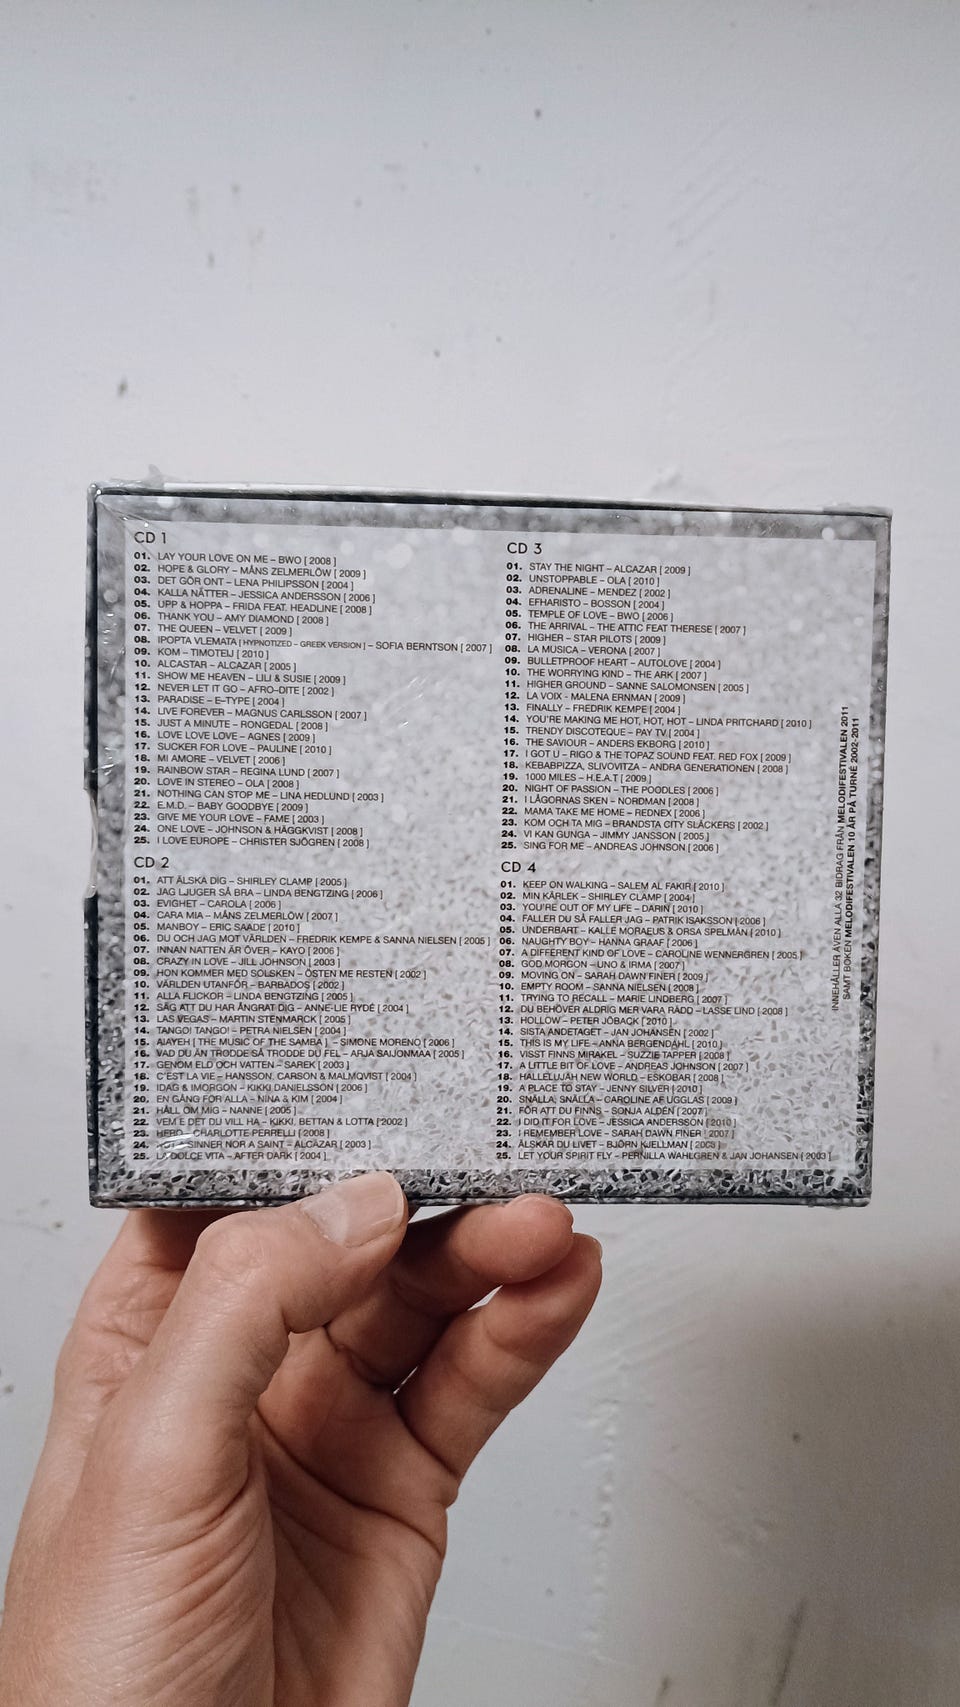 CD 1
01. LAY YOUR LOVE ON ME – BWO [ 2008 ]
02. HOPE & GLORY – MÅNS ZELMERLÖW [ 2009 ]
03. DET GÖR ONT – LENA PHILIPSSON [ 2004 ]
04. KALLA NÄTTER – JESSICA ANDERSSON [ 2006 ]
05. UPP & HOPPA – FRIDA FEAT. HEADLINE [ 2008 ]
06. THANK YOU – AMY DIAMOND [ 2008 ]
07. THE QUEEN – VELVET [ 2009 ]
08. IPOPTA VLEMATA [ HYPNOTIZED – GREEK VERSION ] – SOFIA BERNTSON [ 2007 ]
09. KOM – TIMOTEIJ [ 2010 ]
10. ALCASTAR – ALCAZAR [ 2005 ]
11. SHOW ME HEAVEN – LILI & SUSIE [ 2009 ]
12. NEVER LET IT GO – AFRO-DITE [ 2002 ]
13. PARADISE – E-TYPE [ 2004 ]
14. LIVE FOREVER – MAGNUS CARLSSON [ 2007 ]
15. JUST A MINUTE – RONGEDAL [ 2008 ]
16. LOVE LOVE LOVE – AGNES [ 2009 ]
17. SUCKER FOR LOVE – PAULINE [ 2010 ]
18. MI AMORE – VELVET [ 2006 ]
19. RAINBOW STAR – REGINA LUND [ 2007 ]
20. LOVE IN STEREO – OLA [ 2008 ]
21. NOTHING CAN STOP ME – LINA HEDLUND [ 2003 ]
22. E.M.D. – BABY GOODBYE [ 2009 ]
23. GIVE ME YOUR LOVE – FAME [ 2003 ]
24. ONE LOVE – JOHNSON & HÄGGKVIST [ 2008 ]
25. I LOVE EUROPE – CHRISTER SJÖGREN [ 2008 ]
CD 2
01. ATT ÄLSKA DIG – SHIRLEY CLAMP [ 2005 ]
02. JAG LJUGER SÅ BRA – LINDA BENGTZING [ 2006 ]
03. EVIGHET – CAROLA [ 2006 ]
04. CARA MIA – MÅNS ZELMERLÖW [ 2007 ]
05. MANBOY – ERIC SAADE [ 2010 ]
06. DU OCH JAG MOT VÄRLDEN – FREDRIK KEMPE & SANNA NIELSEN [ 2005 ]
07. INNAN NATTEN ÄR ÖVER – KAYO [ 2006 ]
08. CRAZY IN LOVE – JILL JOHNSON [ 2003 ]
09. HON KOMMER MED SOLSKEN – ÖSTEN ME RESTEN [ 2002 ]
10. VÄRLDEN UTANFÖR – BARBADOS [ 2002 ]
11. ALLA FLICKOR – LINDA BENGTZING [ 2005 ]
12. SÄG ATT DU HAR ÅNGRAT DIG – ANNE-LIE RYDÉ [ 2004 ]
13. LAS VEGAS – MARTIN STENMARCK [ 2005 ]
14. TANGO! TANGO! – PETRA NIELSEN [ 2004 ]
15. AIAYEH [ THE MUSIC OF THE SAMBA ] – SIMONE MORENO [ 2006 ]
16. VAD DU ÄN TRODDE SÅ TRODDE DU FEL – ARJA SAIJONMAA [ 2005 ]
17. GENOM ELD OCH VATTEN – SAREK [ 2003 ]
18. C'EST LA VIE – HANSSON, CARSON & MALMQVIST [ 2004 ]
19. IDAG & IMORGON – KIKKI DANIELSSON [ 2006 ]
20. EN GÅNG FÖR ALLA – NINA & KIM [ 2004 ]
21. HÅLL OM MIG – NANNE [ 2005 ]
22. VEM É DET DU VILL HA – KIKKI, BETTAN & LOTTA [ 2002 ]
23. HERO – CHARLOTTE PERRELLI [ 2008 ]
24. NOT A SINNER NOR A SAINT – ALCAZAR [ 2003 ]
25. LA DOLCE VITA – AFTER DARK [ 2004 ]
CD 3
01. STAY THE NIGHT – ALCAZAR [ 2009 ]
02. UNSTOPPABLE – OLA [ 2010 ]
03. ADRENALINE – MENDEZ [ 2002 ]
04. EFHARISTO – BOSSON [ 2004 ]
05. TEMPLE OF LOVE – BWO [ 2006 ]
06. THE ARRIVAL – THE ATTIC FEAT THERESE [ 2007 ]
07. HIGHER – STAR PILOTS [ 2009 ]
08. LA MUSICA – VERONA [ 2007 ]
09. BULLETPROOF HEART – AUTOLOVE [ 2004 ]
10. THE WORRYING KIND – THE ARK [ 2007 ]
11. HIGHER GROUND – SANNE SALOMONSEN [ 2005 ]
12. LA VOIX – MALENA ERNMAN [ 2009 ]
13. FINALLY – FREDRIK KEMPE [ 2004 ]
14. YOU'RE MAKING ME HOT, HOT, HOT – LINDA PRITCHARD [ 2010 ]
15. TRENDY DISCOTEQUE – PAY TV [ 2004 ]
16. THE SAVIOUR – ANDERS EKBORG [ 2010 ]
17. I GOT U – RIGO & THE TOPAZ SOUND FEAT. RED FOX [ 2009 ]
18. KEBABPIZZA, SLIVOVITZA – ANDRA GENERATIONEN [ 2008 ]
19. 1000 MILES – H.E.A.T [ 2009 ]
20. NIGHT OF PASSION – THE POODLES [ 2006 ]
21. I LÅGORNAS SKEN – NORDMAN [ 2008 ]
22. MAMA TAKE ME HOME – REDNEX [ 2006 ]
23. KOM OCH TA MIG – BRANDSTA CITY SLÄCKERS [ 2002 ]
24. VI KAN GUNGA – JIMMY JANSSON [ 2005 ]
25. SING FOR ME – ANDREAS JOHNSON [ 2006 ]
CD 4
01. KEEP ON WALKING – SALEM AL FAKIR [ 2010 ]
02. MIN KÄRLEK – SHIRLEY CLAMP [ 2004 ]
03. YOU'RE OUT OF MY LIFE – DARIN [ 2010 ]
04. FALLER DU SÅ FALLER JAG – PATRIK ISAKSSON [ 2006 ]
05. UNDERBART – KALLE MORAEUS & ORSA SPELMÄN [ 2010 ]
06. NAUGHTY BOY – HANNA GRAAF [ 2006 ]
07. A DIFFERENT KIND OF LOVE – CAROLINE WENNERGREN [ 2005 ]
08. GOD MORGON – UNO & IRMA [ 2007 ]
09. MOVING ON – SARAH DAWN FINER [ 2009 ]
10. EMPTY ROOM – SANNA NIELSEN [ 2008 ]
11. TRYING TO RECALL – MARIE LINDBERG [ 2007 ]
12. DU BEHÖVER ALDRIG MER VARA RÄDD – LASSE LIND [ 2008 ]
13. HOLLOW – PETER JÖBACK [ 2010 ]
14. SISTA ANDETAGET – JAN JOHANSEN [ 2002 ]
15. THIS IS MY LIFE – ANNA BERGENDAHL [ 2010 ]
16. VISST FINNS MIRAKEL – SUZZIE TAPPER [ 2008 ]
17. A LITTLE BIT OF LOVE – ANDREAS JOHNSON [ 2007 ]
18. HALLELUJAH NEW WORLD – ESKOBAR [ 2008 ]
19. A PLACE TO STAY – JENNY SILVER [ 2010 ]
20. SNÄLLA, SNÄLLA – CAROLINE AF UGGLAS [ 2009 ]
21. FÖR ATT DU FINNS – SONJA ALDÉN [ 2007 ]
22. I DID IT FOR LOVE – JESSICA ANDERSSON [ 2010 ]
23. I REMEMBER LOVE – SARAH DAWN FINER [ 2007 ]
24. ÄLSKAR DU LIVET – BJÖRN KJELLMAN [ 2003 ]
25. LET YOUR SPIRIT FLY – PERNILLA WAHLGREN & JAN JOHANSEN [ 2003 ]
INNEHÅLLER ÄVEN ALLA 32 BIDRAG FRÅN MELODIFESTIVALEN 2011
SAMT BOKEN MELODIFESTIVALEN 10 ÅR PÅ TURNÉ 2002-2011